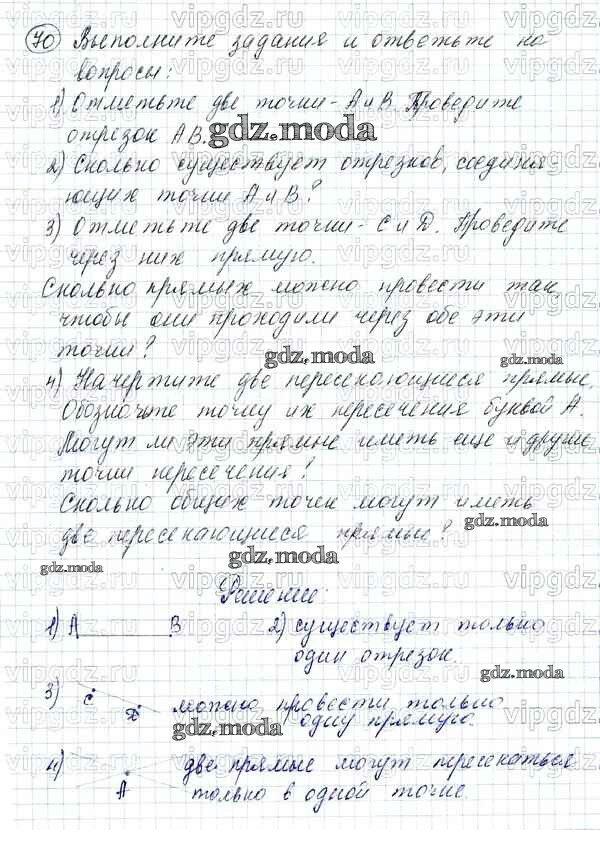 70 Выполните задания и ответьте на
вопросы:
1) Отметьте две точки - А и В. Проведите
отрезок АВ.
2) Сколько существует отрезков, соединя
ющих точки А и В?
3) Отметьте две точки - С и D. Проведите
через них прямую.
Сколько прямых можно провести так
чтобы они проходили через обе эти
точки?
4) Начертите две пересекающиеся прямые,
Обозначьте точку их пересечения буквой А.
Могут ли эти прямые иметь еще и другие
точки пересечения?
Сколько общих точек могут иметь
две пересекающиеся прямые?
Решение:
1) А В 2) существует только
один отрезок.
3) С D можно провести только
одну прямую.
4) А две прямые могут пересекаться
только в одной точке.
gdz.moda
gdz.moda
gdz.moda
gdz.moda
gdz.moda
gdz.moda
gdz.moda
gdz.moda
gdz.moda
vipgdz.ru